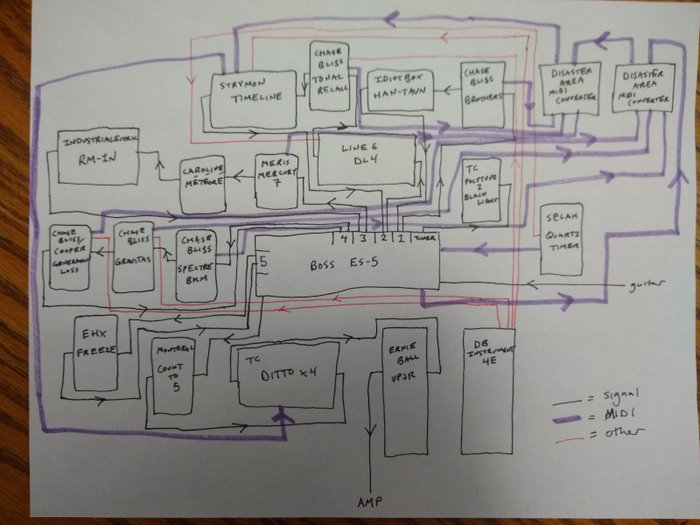 CHASE
BLISS
TONAL
RECALL
STRYMON
TIMELINE
IDIOTBOX
MAN-TAUN
CHASE
BLISS
BROTHERS
DISASTER
AREA
MIDI
CONVERTER
DISASTER
AREA
MIDI
CONVERTER
INDUSTRIALECTRIC
RM-1N
CAROLINE
METEORE
MERIS
MERCURY
7
LINE 6
DL4
TC
POLYTUNE
2
BLACK
LIGHT
SELAH
QUARTZ
TIMER
CHASE
BLISS/
COOPER
GENERATION
LOSS
CHASE
BLISS
GRAVITAS
CHASE
BLISS
SPECTRE
4 3 2 1 TUNER
5
BOSS ES-5
guitar
EHX
FREEZE
MONTREAL
COUNT
TO
5
TC
DITTO X4
ERNIE
BALL
VPJR
DB
INSTRUMENT
4E
= signal
= MIDI
= other
AMP